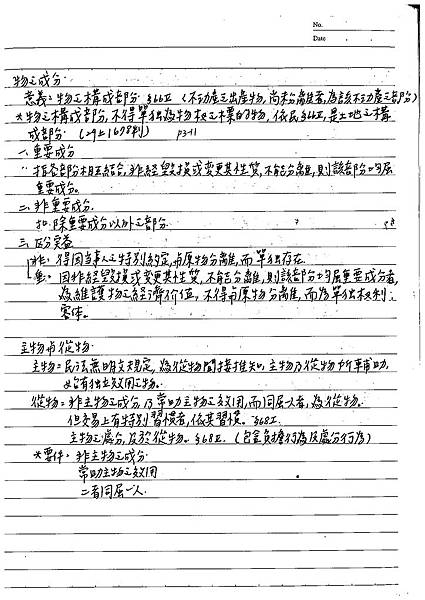 No.
Date
物之成分
意義:物之構成部分. §66Ⅱ (不動產之出產物,尚未分離者,為該不動產之部分)
*物之構成部分,不得單獨為物权之標的物,依民§66Ⅱ,是土地之構
成部分. (29上1678判) p3-11
一.重要成分
:指各部分相互結合,非經毀損或變更其性質,不能分離,則該部分均屬
重要成分。
二.非重要成分.
指 除重要成分以外之部分
三.區分實益
非:得因當人之特別約定,與原物分離,而單獨存在.
重:因非經毀損或變更其性質,不能分離,則該部分均屬重要成分者,
為維護物之經濟價值,不得與原物分離,而為單獨权利
客体。
主物与從物.
主物=民法無明文規定,為從物間接推知.主物及從物所輔助.
具有獨立效用之物。
從物=非主物之成分,及常助主物之效用,而同屬一人者,為從物。
但交易上有特別習慣者,依其習慣。§68Ⅰ.
主物之處分,及於從物。§68Ⅱ. (包含負擔行為及處分行為)
*要件:非主物之成分
常助主物之效用
二者同屬一人.